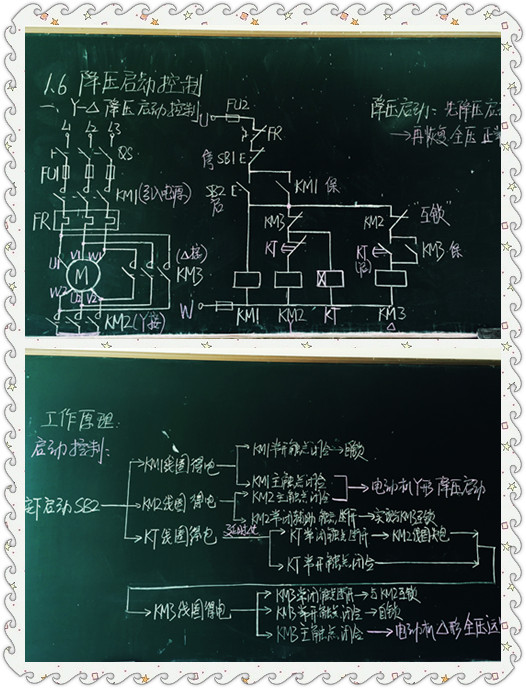 1.6 降压启动控制
一、Y-△降压启动控制
降压启动：先降压启
→再恢复全压 正常
L1 L2 L3
U FU2
FR
QS
停SB1 E
FU1
KM1(引入电源)
SB2 E
启
KM1 保
FR
KM3
KM2 "互锁"
U1 V1 W1
M
(△接)
KM3
KT
KT
KM3 保
W2 U2 V2
KM2(Y接)
W
KM1 KM2 KT KM3
Y △
工作原理：
启动控制：
按下启动SB2
KM1线圈得电
KM1常开触点闭合→自锁
KM1主触点闭合
→电动机Y形降压启动
KM2线圈得电
KM2主触点闭合
KM2常闭辅助触点断开→实现与KM3互锁
KT线圈得电
延时后
KT常闭触点断开→KM2线圈失电
KT常开触点闭合
→KM3线圈得电
KM3常闭触点断开→与KM2互锁
KM3常开触点闭合→自锁
KM3主触点闭合→电动机△形全压运